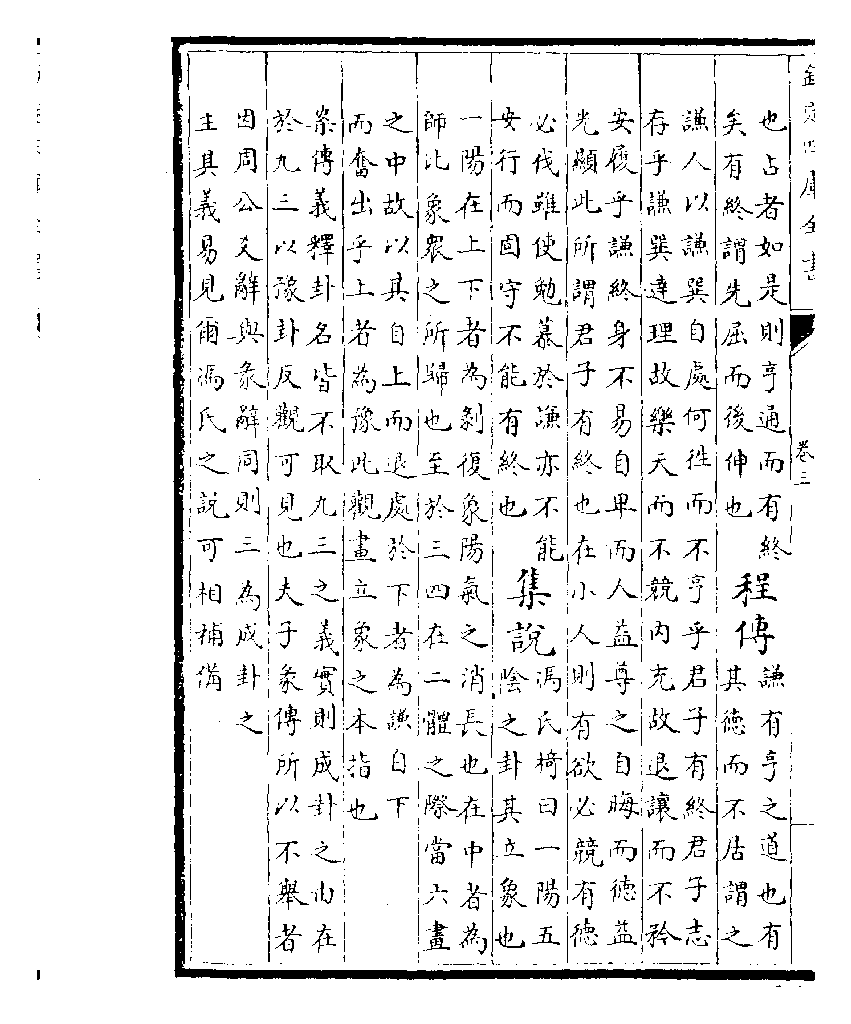 欽定四庫全書
卷三
也占者如是則亨通而有終
矣有終謂先屈而後伸也
程傳
謙有亨之道也有
其德而不居謂之
謙人以謙巽自處何徃而不亨乎君子有終君子志
存乎謙巽達理故樂天而不競内充故退讓而不矜
安履乎謙終身不易自卑而人益尊之自晦而德益
光顯此所謂君子有終也在小人則有欲必競有德
必伐雖使勉慕於謙亦不能
安行而固守不能有終也
集說
馮氏椅曰一陽五
陰之卦其立象也
一陽在上下者為剝復象陽氣之消長也在中者為
師比象衆之所歸也至於三四在二體之際當六畫
之中故以其自上而退處於下者為謙自下
而奮出乎上者為豫此觀畫立象之本指也
案傳義釋卦名皆不取九三之義實則成卦之由在
於九三以豫卦反觀可見也夫子彖傳所以不舉者
因周公爻辭與彖辭同則三為成卦之
主其義易見爾馮氏之說可相補備